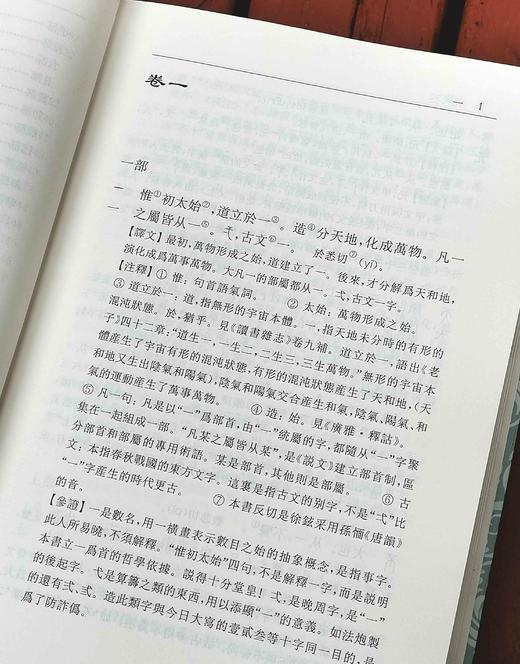 卷一
一 1
一部
一 惟①初太始②，道立於一③。造④分天地，化成萬物。凡一
一 之屬皆从一⑤。弌，古文⑥一。 於悉切⑦（yī）。
【譯文】最初，萬物形成之始，道建立了一。後來，才分解爲天和地，
演化成爲萬事萬物。大凡一的部屬都从一。弌，古文一字。
【注釋】① 惟：句首語氣詞。 ② 太始：萬物形成之始。
③ 道立於一：道，指無形的宇宙本體。一，指天地未分時的有形的
混沌狀態。於：猶乎。見《讀書雜志》卷九補。道立於一，語出《老
子》四十二章：“道生一，一生二，二生三，三生萬物。”無形的宇宙本
體產生了宇宙有形的混沌狀態，有形的混沌狀態產生了天和地，（天
和地又生出陰氣和陽氣），陰氣和陽氣交合產生和氣，陰氣、陽氣、和
氣的運動產生了萬事萬物。 ④ 造：始。見《廣雅·釋詁》。
⑤ 凡一句：凡是以“一”爲部首，由“一”統屬的字，都隨从“一”字聚
集在一起組成一部。“凡某之屬皆从某”，是《説文》建立部首制，區
分部首和部屬的專用術語。某是部首，其他則是部屬。 ⑥ 古
文：本指春秋戰國的東方文字。這裏是指古文的别字，不是“弌”比
“一”字産生的時代更古。 ⑦ 本書反切是徐鉉采用孫愐《唐韻》
的音。
【參證】一是數名，用一横畫表示數目之始的抽象概念，是指事字。
此人所易曉，不須解釋。“惟初太始”四句，不是解釋一字，而是説明
本書立一爲首的哲學依據。説得十分堂皇！弌，是晚周字，是“一”
的後起字。弋是算籌之類的東西，用以添顯“一”的意義。如法炮製
的還有弍、弎。造此類字與今日大寫的壹貳叁等十字同一目的，是
爲了防詐僞。